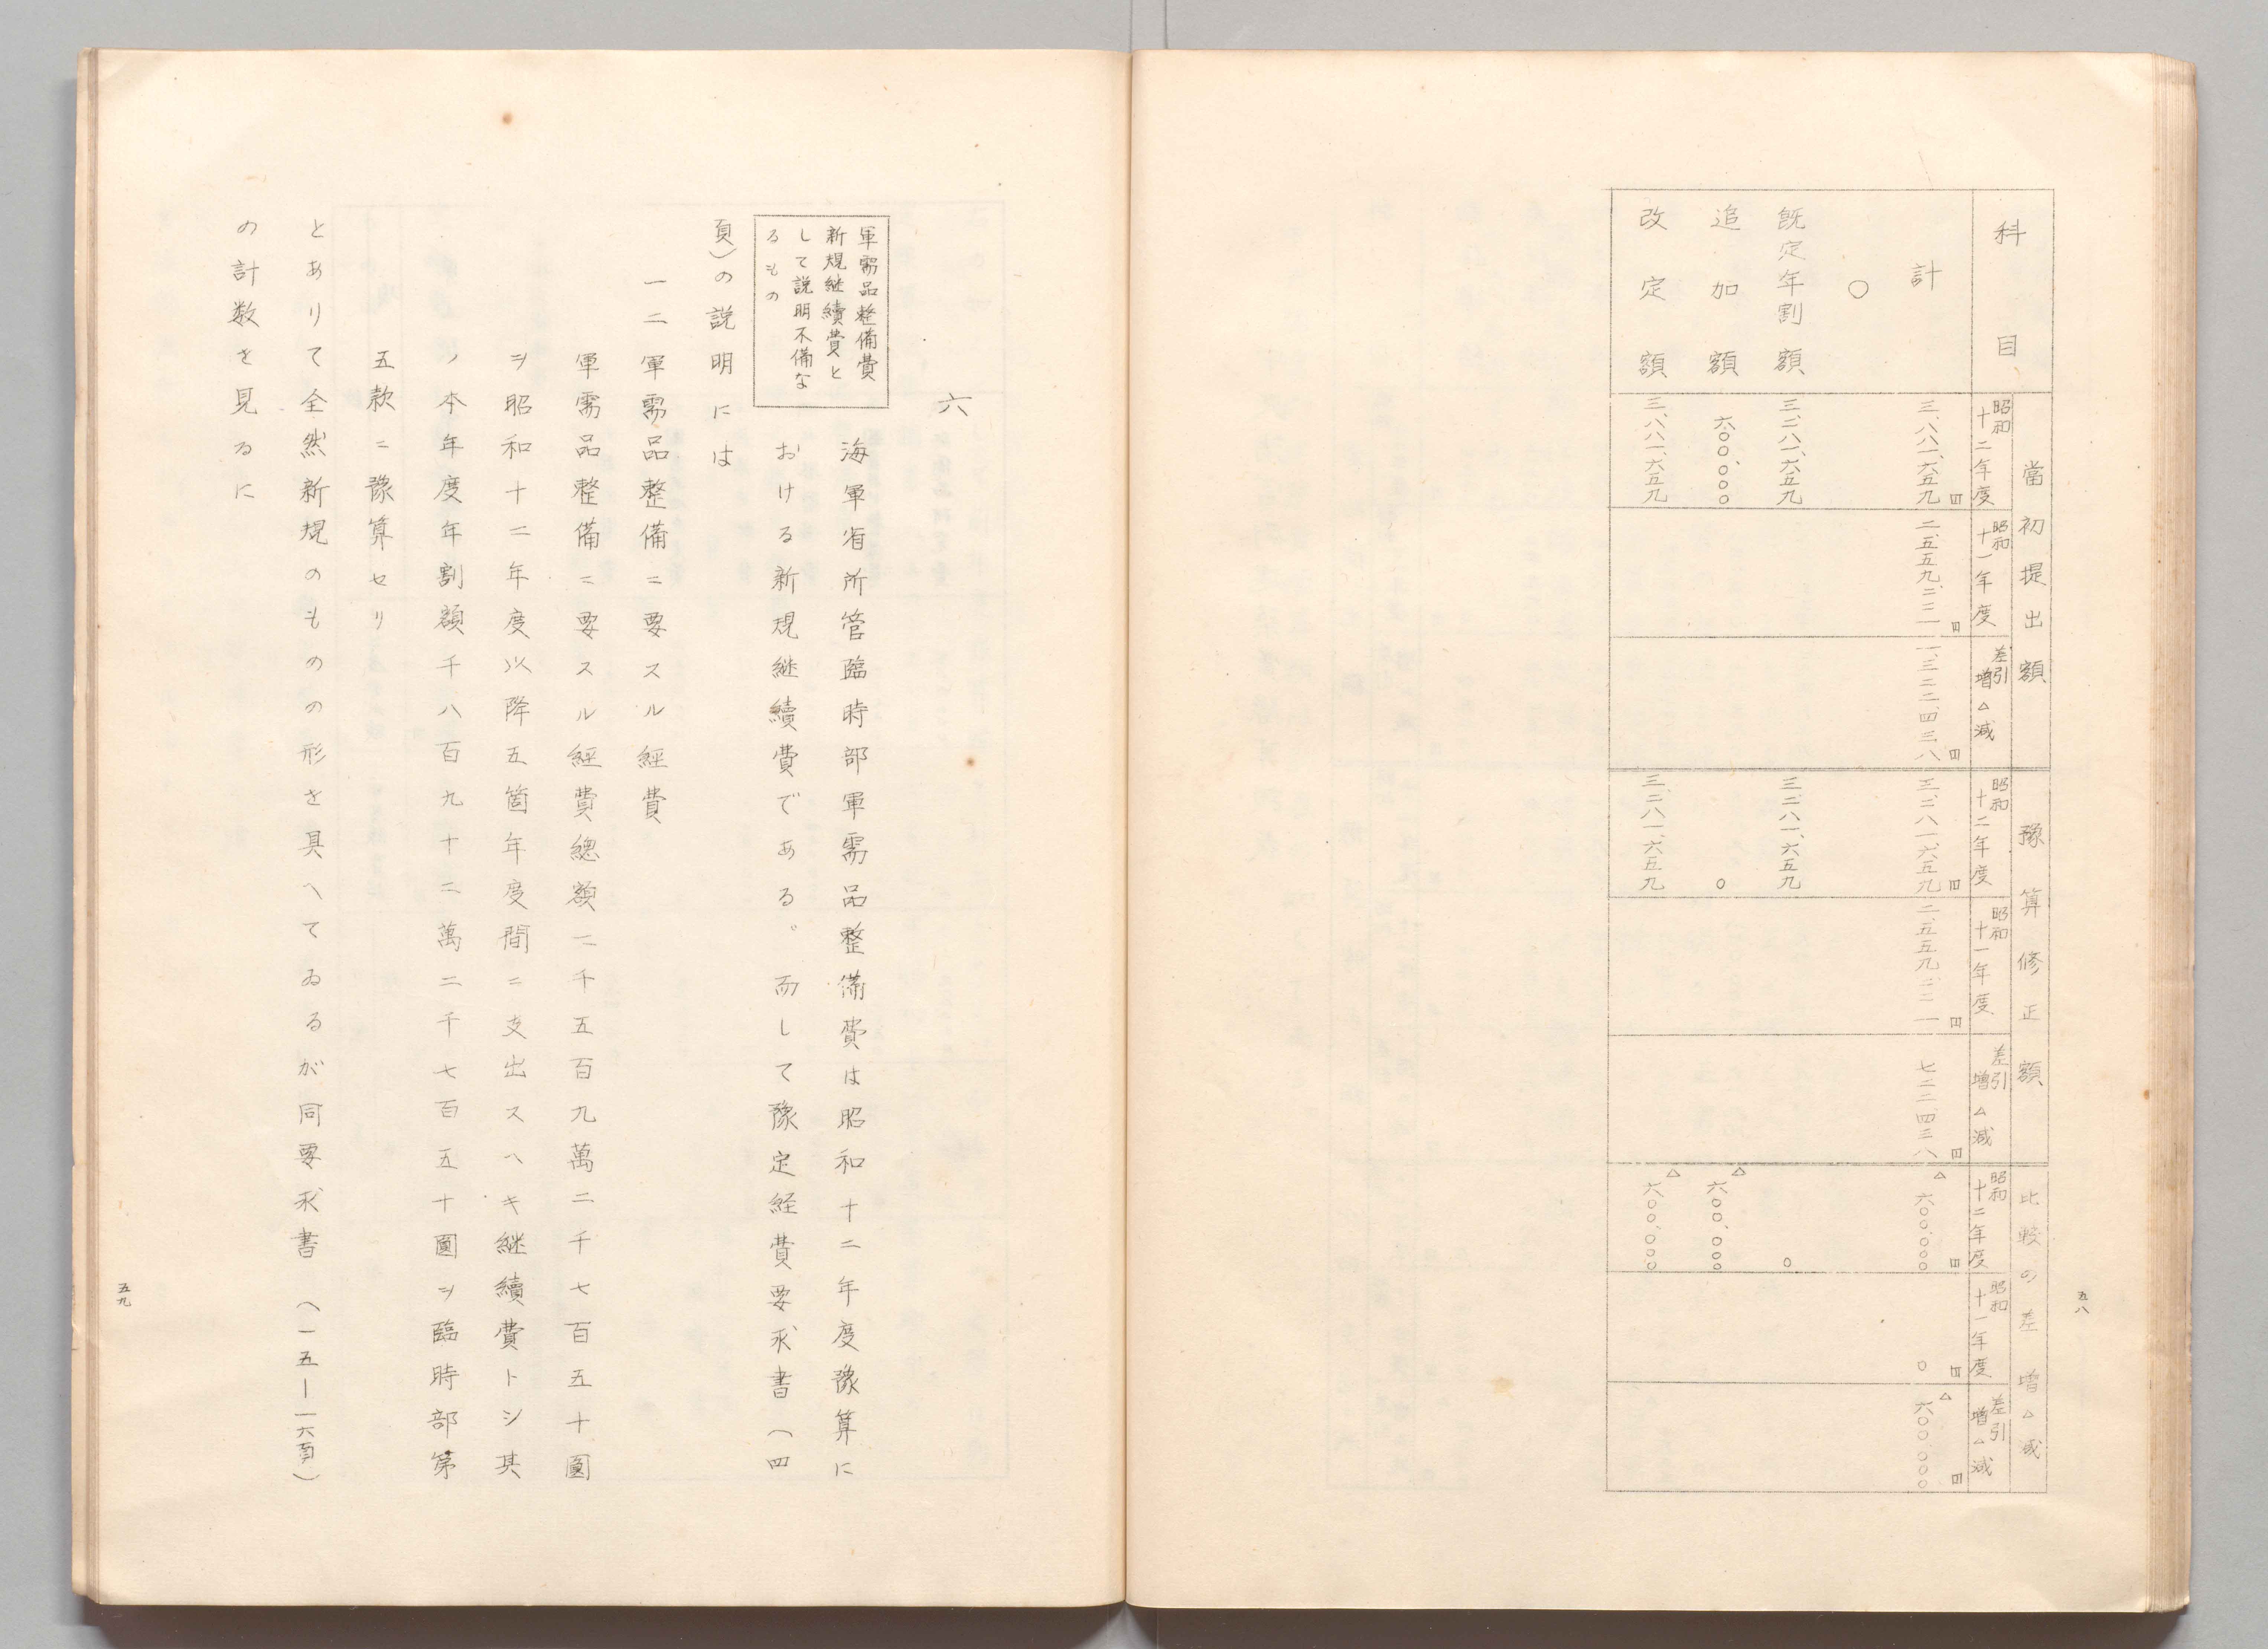 五八
科目 當初提出額 豫算修正額 比較の差増△減
昭和十二年度 昭和十一年度 差引増△減 昭和十二年度 昭和十一年度 差引増△減 昭和十二年度 昭和十一年度 差引増△減
計 三、八八一、六五九円 二、五五九、二二一円 一、三二二、四三八円 三、二八一、六五九円 二、五五九、二二一円 七二二、四三八円 △六〇〇、〇〇〇円 〇円 △六〇〇、〇〇〇円
〇
既定年割額 三、二八一、六五九 三、二八一、六五九 〇
追加額 六〇〇、〇〇〇 〇 △六〇〇、〇〇〇
改定額 三、八八一、六五九 三、二八一、六五九 △六〇〇、〇〇〇
六
軍需品整備費
新規継續費と
して説明不備な
るもの
海軍省所管臨時部軍需品整備費は昭和十二年度豫算に
おける新規継續費である。而して豫定経費要求書（四
頁）の説明には
一二軍需品整備ニ要スル經費
軍需品整備ニ要スル經費總額二千五百九萬二千七百五十圓
ヲ昭和十二年度以降五箇年度間ニ支出スヘキ継續費トシ其
ノ本年度年割額千八百九十二萬二千七百五十圓ヲ臨時部第
五款ニ豫算セリ
とありて全然新規のものの形を具へてゐるが同要求書（一五—一六頁）
の計数を見るに
五九